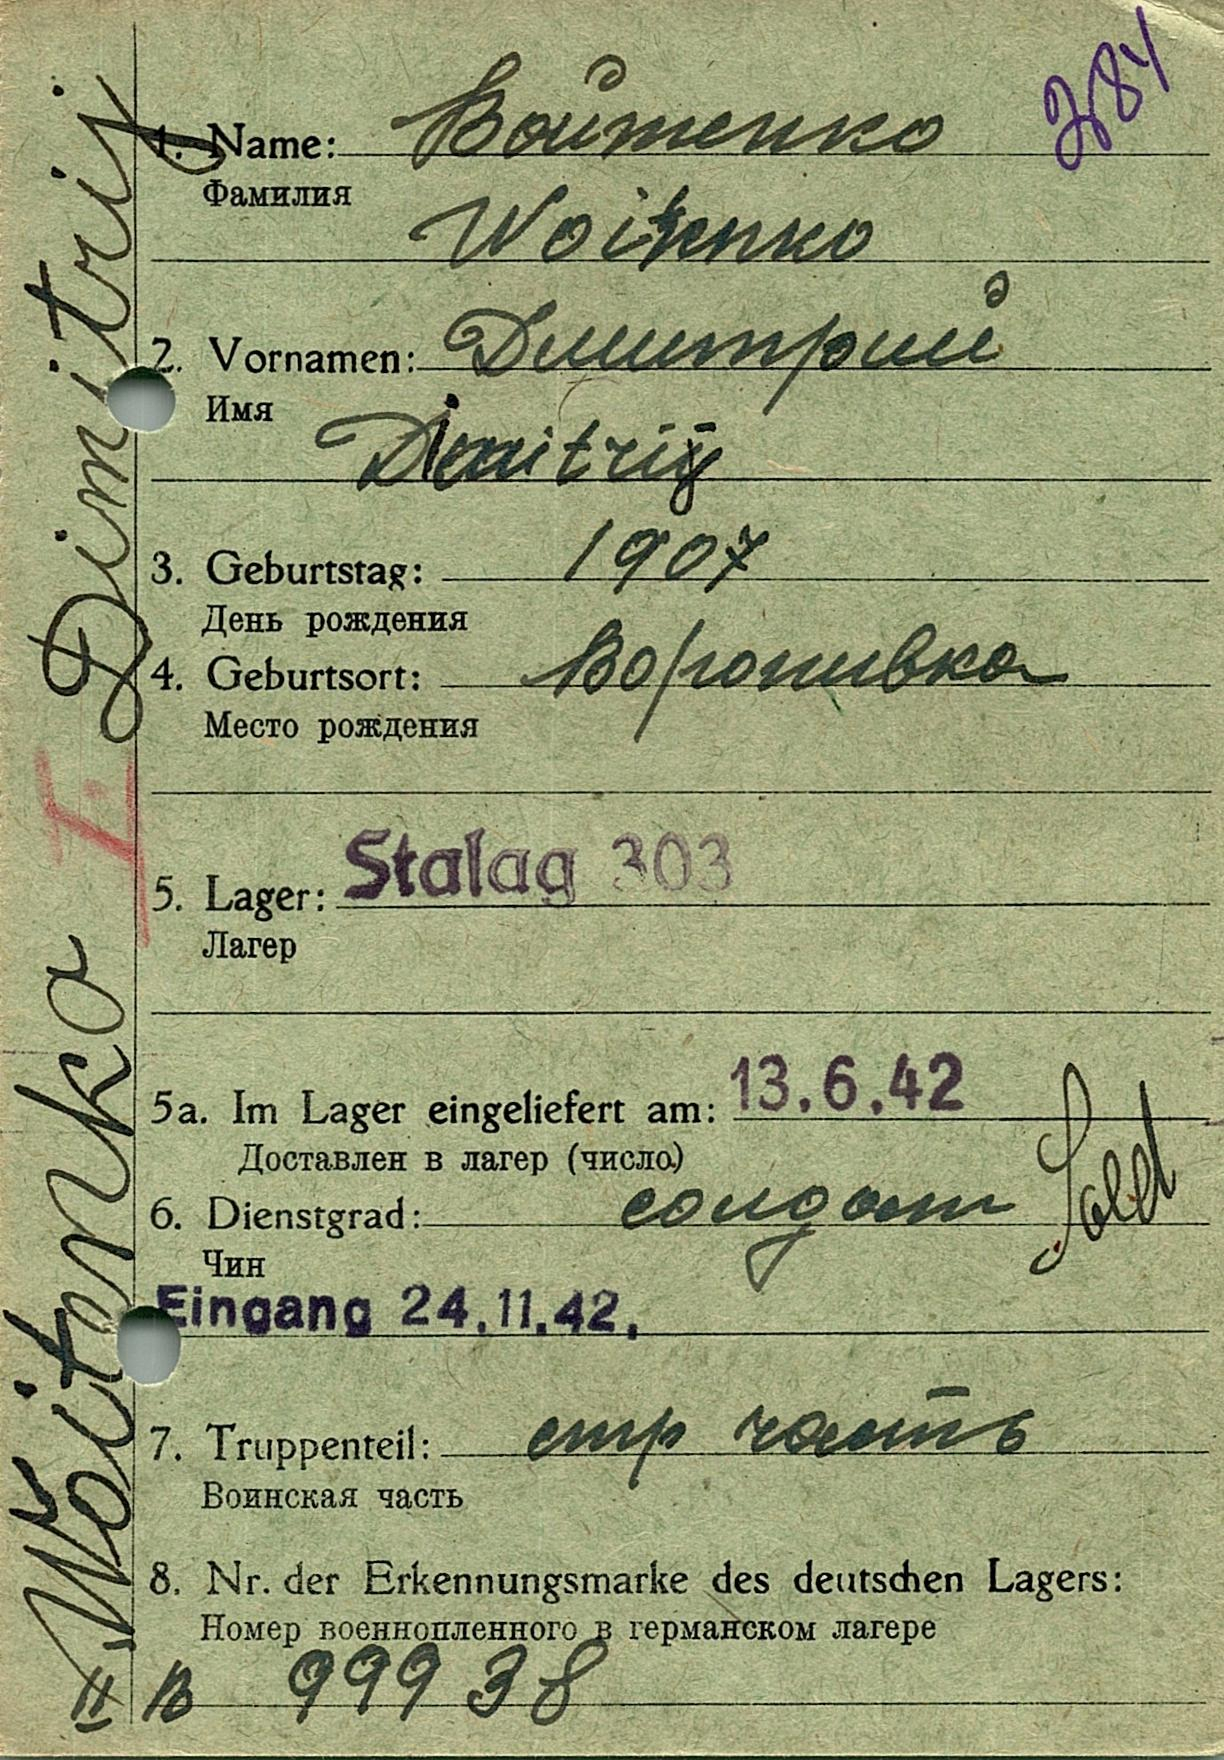 384
1. Name: Войтенко
Фамилия
Woitenko
2. Vornamen: Дмитрий
Имя
Dimitrij
3. Geburtstag: 1907
День рождения
4. Geburtsort: Воронивка
Место рождения
5. Lager: Stalag 303
Лагер
5a. Im Lager eingeliefert am: 13.6.42
Доставлен в лагер (число)
6. Dienstgrad: солдат Sold
Чин
Eingang 24.11.42.
7. Truppenteil: стр часть
Воинская часть
8. Nr. der Erkennungsmarke des deutschen Lagers:
Номер военнопленного в германском лагере
II B 99938
Woitenko I. Dimitrij